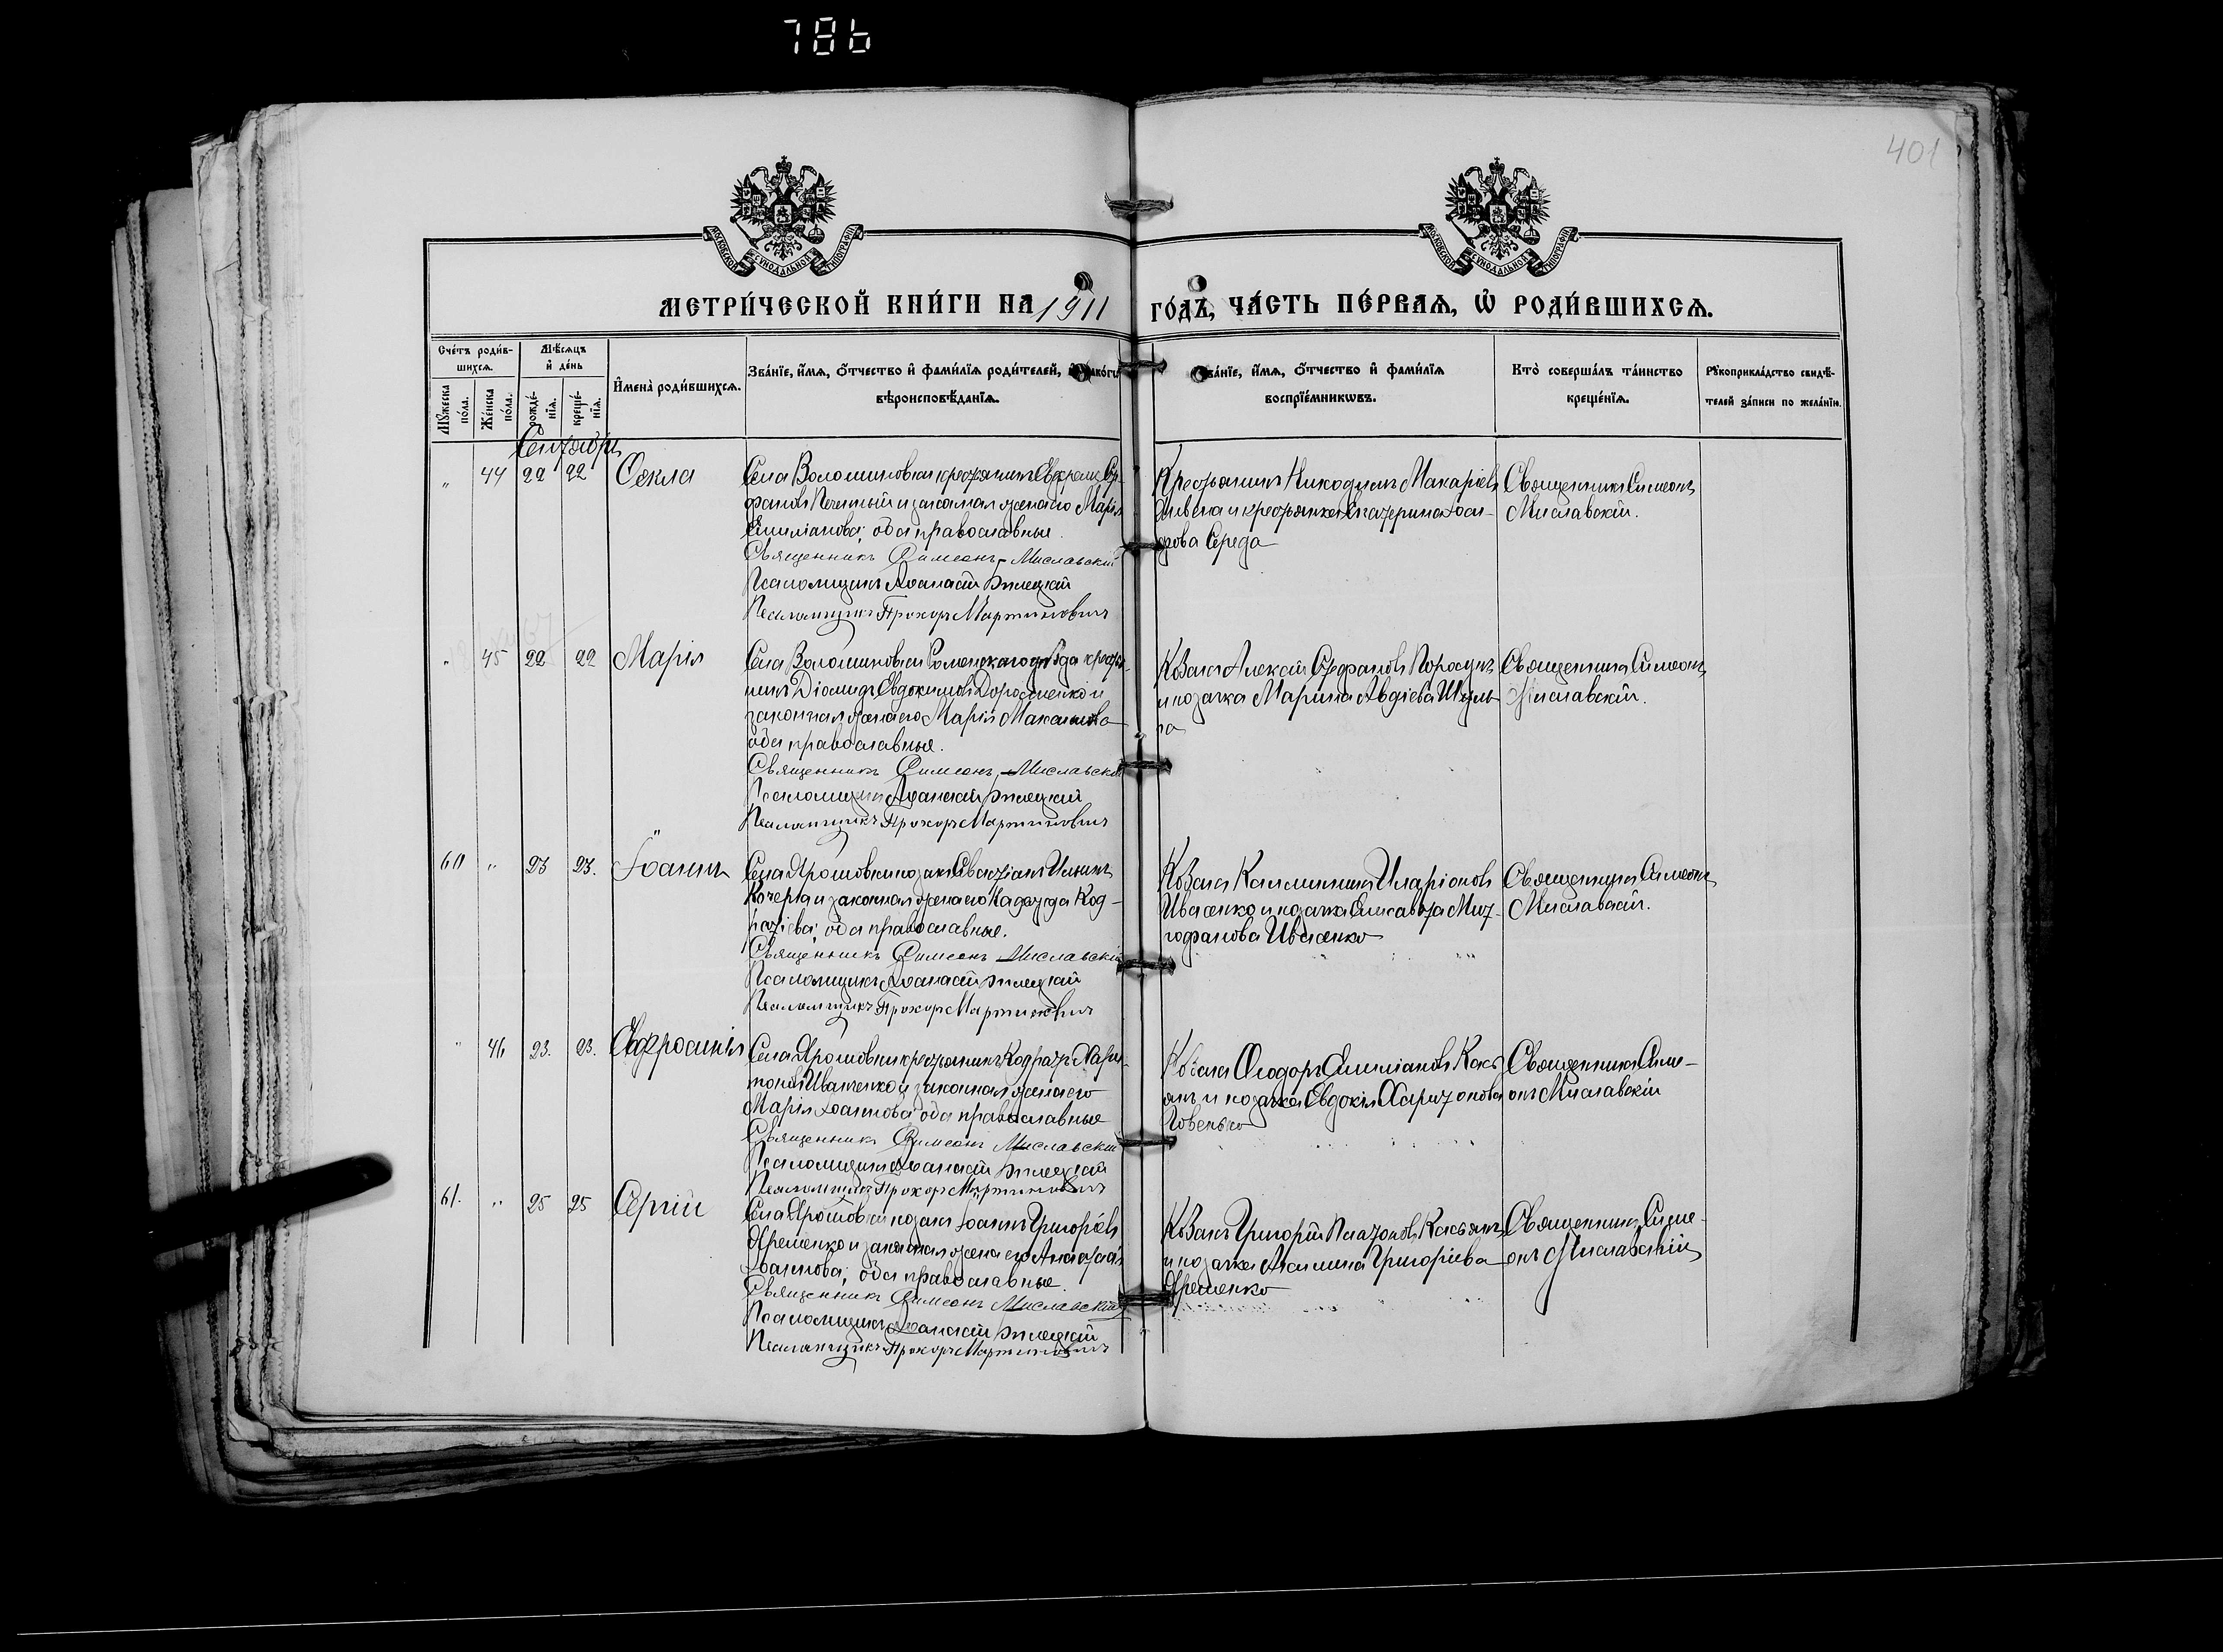 786
401
МОСКОВСКОЙ СѴНОДАЛЬНОЙ ТИПОГРАФІИ
МОСКОВСКОЙ СѴНОДАЛЬНОЙ ТИПОГРАФІИ
МЕТРИ́ЧЕСКОЙ КНИ́ГИ НА 1911 ГО́ДЪ, ЧА́СТЬ ПЕ́РВАѦ, Ѡ҆ РОДИ́ВШИХСѦ.
Сче́тъ роди́в-
шихсѧ.
Мꙋ́жеска по́ла.
Же́нска по́ла.
Мѣ́сѧцъ
и҆ де́нь
рожде́-
нїѧ.
креще́-
нїѧ.
И҆мена̀ роди́вшихсѧ.
Зва́нїе, и҆́мѧ, ѻ҆́тчество и҆ фами́лїѧ роди́телей,
вѣроисповѣ́данїѧ.
Зва́нїе, и҆́мѧ, ѻ҆́тчество и҆ фами́лїѧ
воспрїе́мникѡвъ.
Кто̀ соверша́лъ та́инство
креще́нїѧ.
Рꙋкоприкла́дство свидѣ́-
телей за́писи по жела́нїю.
Сентябрь
" 44 22 22 Ѳекла
Села Волошиновки крестьянинъ Евфремъ Сте-
фановъ и законная жена его Марія
Емиліанова; оба православные.
Священникъ Симеонъ Миславскій
Псаломщикъ Аѳанасій
Псаломщикъ Прохоръ Мартиновичъ
Крестьянинъ Никодимъ Макаріевъ
и крестьянка Екатерина Іоси-
фова Середа
Священникъ Симеонъ
Миславскій.
" 45 22 22 Марія
Села Волошиновки Роменскаго уѣзда крестья-
нинъ Діомидъ Евдокимовъ Дорошенко и
законная жена его Марія Максимова
оба православные.
Священникъ Симеонъ Миславскій
Псаломщикъ Аѳанасій
Псаломщикъ Прохоръ Мартиновичъ
Козакъ Алексій Стефановъ
и козачка Марина Авдіева Шуль-
га
Священникъ Симеонъ
Миславскій.
60 " 23 23. Іоаннъ
Села Ярошовки козакъ Евстаѳій Ильинъ
Кочерга и законная жена его Надежда Код-
ратіева; оба православные.
Священникъ Симеонъ Миславскій
Псаломщикъ Аѳанасій
Псаломщикъ Прохоръ Мартиновичъ
Козакъ Каллиникъ Иларіоновъ
Ивасенко и козачка Елисавета Мит-
рофанова Ивасенко
Священникъ Симеонъ
Миславскій.
" 46 23. 23. Евфросинія
Села Ярошовки крестьянинъ Кодратъ Хари-
тоновъ Иванченко и законная жена его
Марія Іоаннова оба православные
Священникъ Симеонъ Миславскій
Псаломщикъ Аѳанасій
Псаломщикъ Прохоръ Мартиновичъ
Козакъ Ѳеодоръ Емиліановъ Касъ-
янъ и козачка Евдокія Харитонова
Священникъ Симе-
онъ Миславскій
61. " 25 25 Сергій
Села Ярошовки козакъ Іоаннъ Григоріевъ
Яременко и законная жена его Анастасія
Іоаннова; оба православные.
Священникъ Симеонъ Миславскій
Псаломщикъ Аѳанасій
Псаломщикъ Прохоръ Мартиновичъ
Козакъ Григорій Платоновъ Касьянъ
и козачка Акилина Григоріева
Яременко
Священникъ Симе-
онъ Миславскій